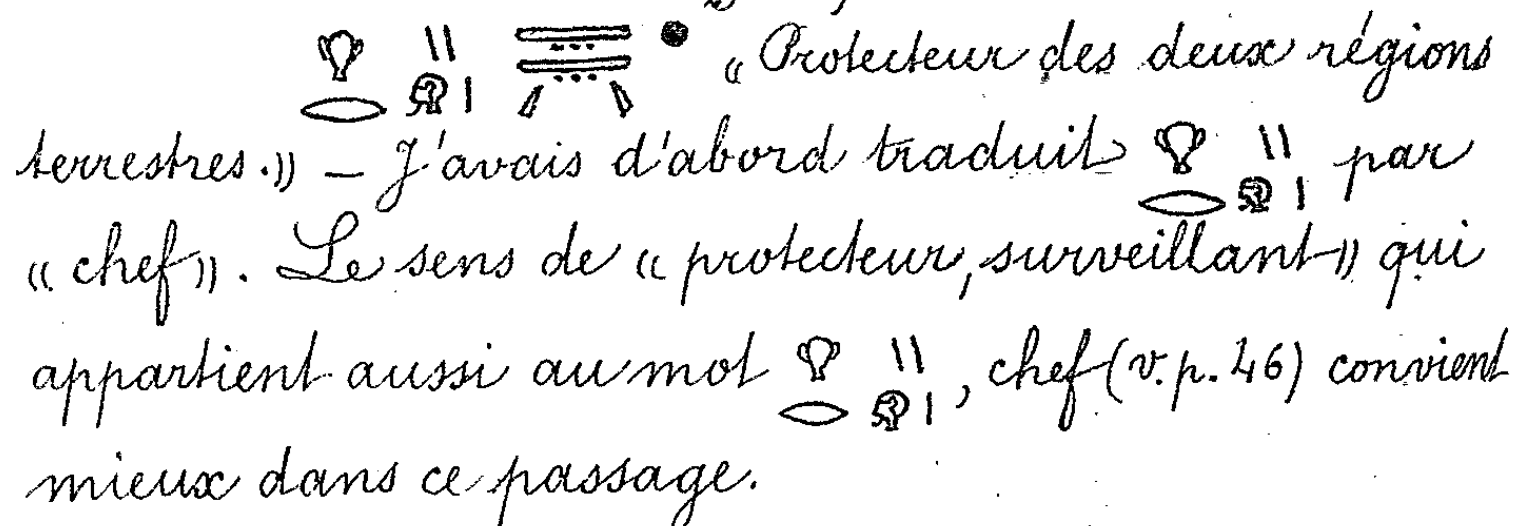 𓁷𓂋𓏭𓁶𓏤𓇿𓇿 « Protecteur des deux régions
terrestres.» — J'avais d'abord traduit 𓁷𓂋𓏭𓁶𓏤 par
« chef ». Le sens de « protecteur, surveillant » qui
appartient aussi au mot 𓁷𓂋𓏭𓁶𓏤, chef (v. p. 46) convient
mieux dans ce passage.